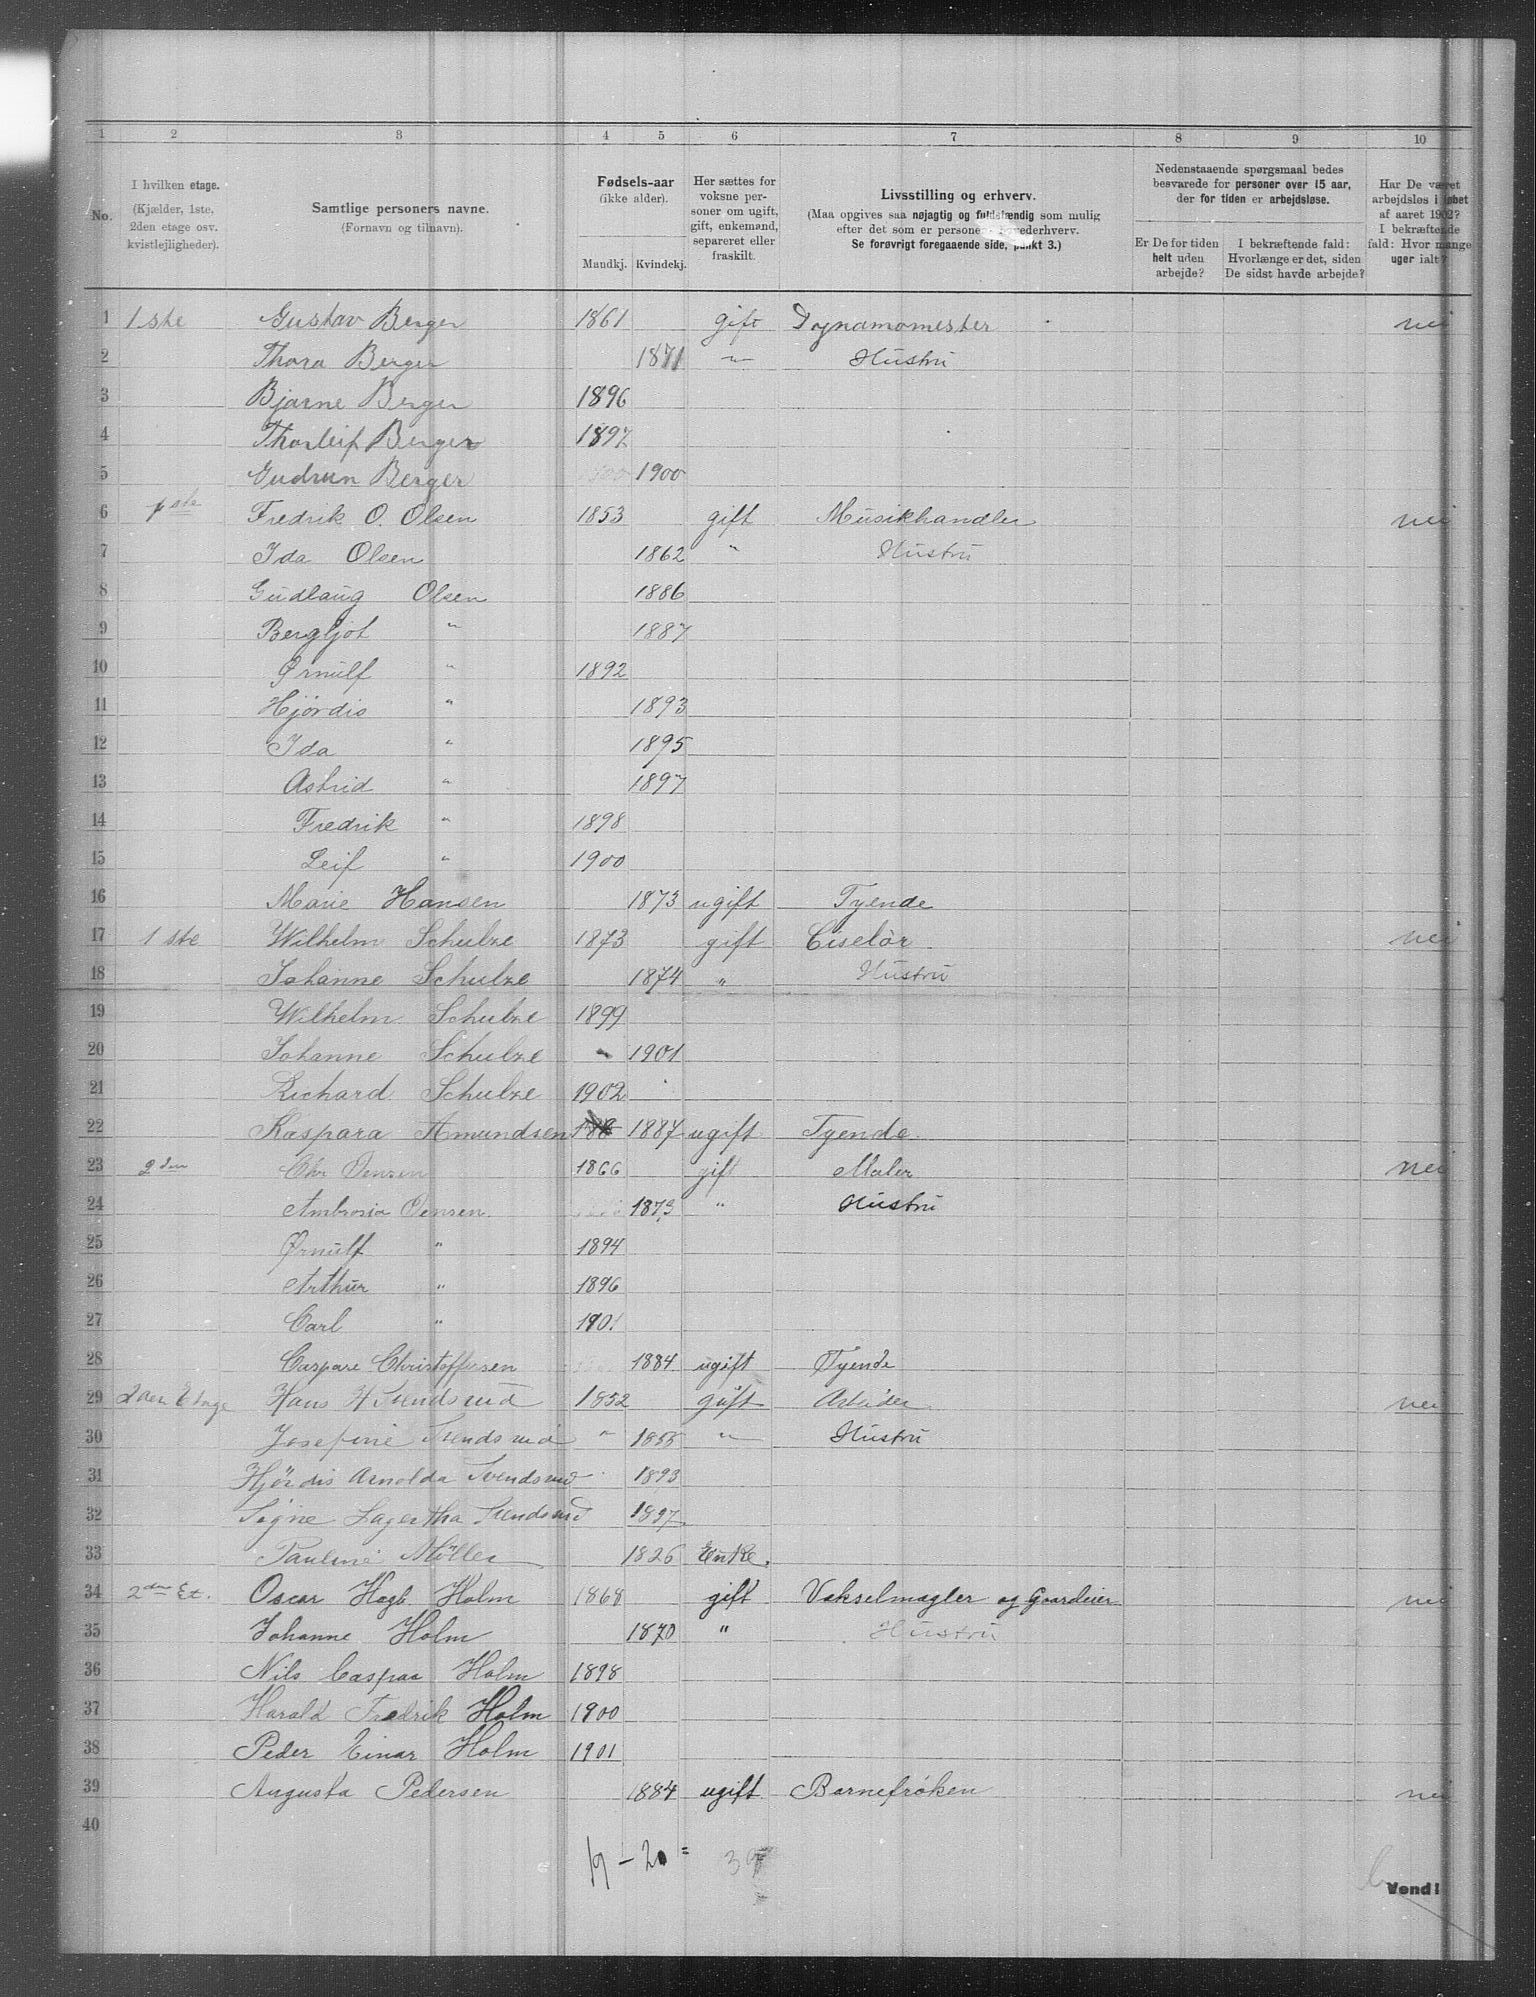 1 2 3 4 5 6 7 8 9 10
No.
I hvilken etage.
(Kjælder, 1ste,
2den etage osv.
kvistlejligheder).
Samtlige personers navne.
(Fornavn og tilnavn).
Fødsels-aar
(ikke alder).
Mandkj. Kvindekj.
Her sættes for
voksne per-
soner om ugift,
gift, enkemand,
separeret eller
fraskilt.
Livsstilling og erhverv.
(Maa opgives saa nøjagtig og fuldstændig som mulig
efter det som er personens hovederhverv.
Se forøvrigt foregaaende side, punkt 3.)
Nedenstaaende spørgsmaal bedes
besvarede for personer over 15 aar,
der for tiden er arbejdsløse.
Er De for tiden
helt uden
arbejde?
I bekræftende fald:
Hvorlænge er det, siden
De sidst havde arbejde?
Har De været
arbejdsløs i løbet
af aaret 1902?
I bekræftende
fald: Hvor mange
uger ialt?
1 1 ste Gustav Berger 1861 gift Dynamomester nei
2 Thora Berger 1871 " Hustru
3 Bjarne Berger 1896
4 Thorleif Berger 1897
5 Gudrun Berger 1900
6 1 ste Fredrik O. Olsen 1853 gift Musikhandler nei
7 Ida Olsen 1862 " Hustru
8 Gudlaug Olsen 1886
9 Bergljot " 1887
10 Ørnulf " 1892
11 Hjørdis " 1893
12 Ida " 1895
13 Astrid " 1897
14 Fredrik " 1898
15 Leif " 1900
16 Marie Hansen 1873 ugift Tyende
17 1 ste Wilhelm Schulze 1873 gift Ciselör nei
18 Johanne Schulze 1874 " Hustru
19 Wilhelm Schulze 1899
20 Johanne Schulze 1901
21 Richard Schulze 1902
22 Kaspara Amundsen 1887 ugift Tyende
23 2 den Chr Jensen 1866 gift Maler nei
24 Ambrosia Jensen 1873 " Hustru
25 Ørnulf " 1894
26 Arthur " 1896
27 Carl " 1901
28 Caspare Christoffersen 1884 ugift Tyende
29 2 den Etage Hans H Svendsrud 1852 gift Arbeider nei
30 Josefine Svendsrud " 1855 " Hustru
31 Hjördis Arnolda Svendsrud 1893
32 Signe Lagertha Svendsrud 1897
33 Pauline Möller 1826 Enke.
34 2 den Et. Oscar Hagb. Holm 1868 gift Vekselmægler og Gaardeier nei
35 Johanne Holm 1870 " Hustru
36 Nils Caspar Holm 1898
37 Harald Fredrik Holm 1900
38 Peder Einar Holm 1901
39 Augusta Pedersen 1884 ugift Barnefröken nei
40
19 - 20 = 39
Vend!